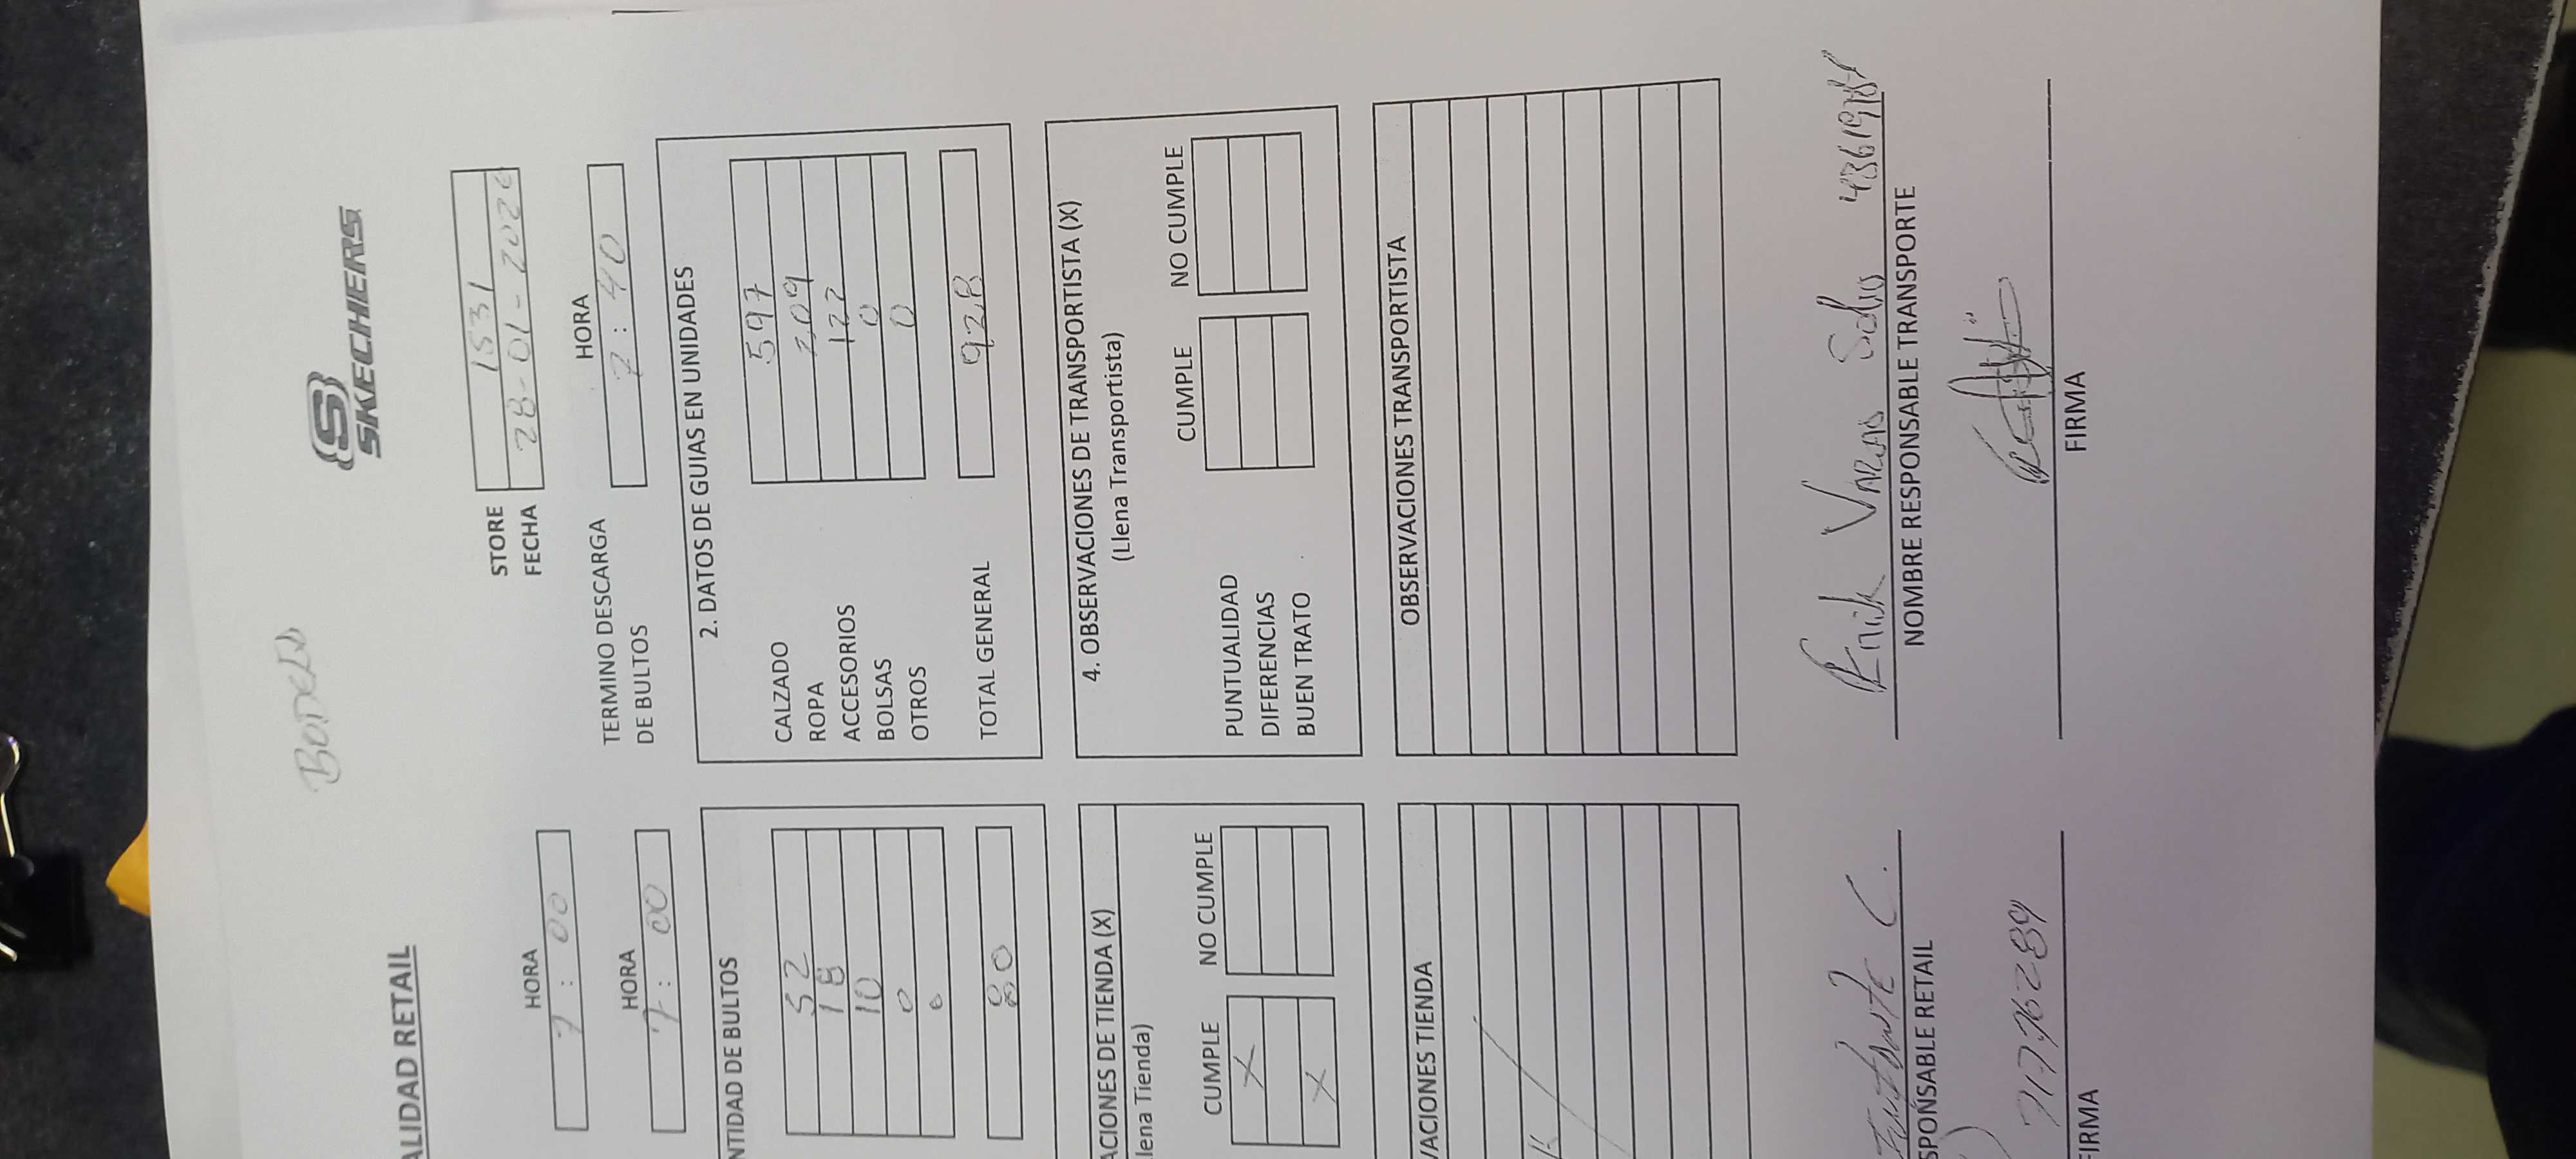 BODEGA
SKECHERS
ALIDAD RETAIL
STORE 1531
FECHA 28-01-2026
HORA
7:00
HORA
7:00
TERMINO DESCARGA DE BULTOS
HORA
7:40
NTIDAD DE BULTOS
52
18
10
0
0
80
2. DATOS DE GUIAS EN UNIDADES
CALZADO 597
ROPA 209
ACCESORIOS 122
BOLSAS 0
OTROS 0
TOTAL GENERAL 928
ACIONES DE TIENDA (X)
lena Tienda)
CUMPLE NO CUMPLE
X
X
4. OBSERVACIONES DE TRANSPORTISTA (X)
(Llena Transportista)
CUMPLE NO CUMPLE
PUNTUALIDAD
DIFERENCIAS
BUEN TRATO
VACIONES TIENDA
OBSERVACIONES TRANSPORTISTA
C.
SPONSABLE RETAIL
FIRMA
Vargas Solis
NOMBRE RESPONSABLE TRANSPORTE
FIRMA